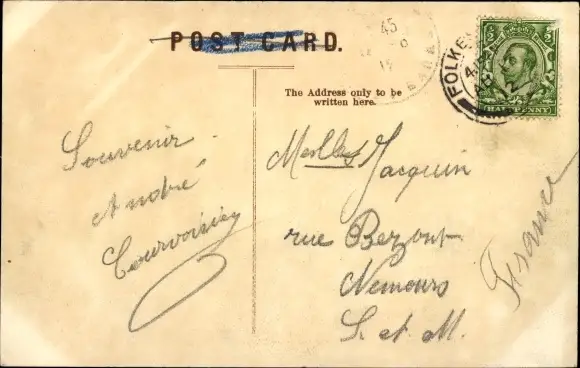 POST CARD.
The Address only to be
written here.
FOLKE
HALFPENNY
45
Souvenir
André
Courvoisier
Melles Jacquin
rue Bezout
Nemours
S. et M.
France